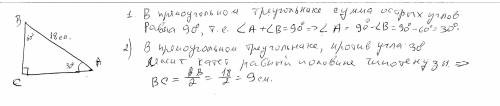 B
60°
18 см.
30°
C
A
1 В прямоугольном треугольнике сумма острых углов
равна 90°, т.е. ∠A+∠B=90° => ∠A = 90°-∠B=90°-60°=30°.
2) В прямоугольном треугольнике, против угла 30°
лежит катет равный половине гипотенузы =>
BC = AB/2 = 18/2 = 9 см.